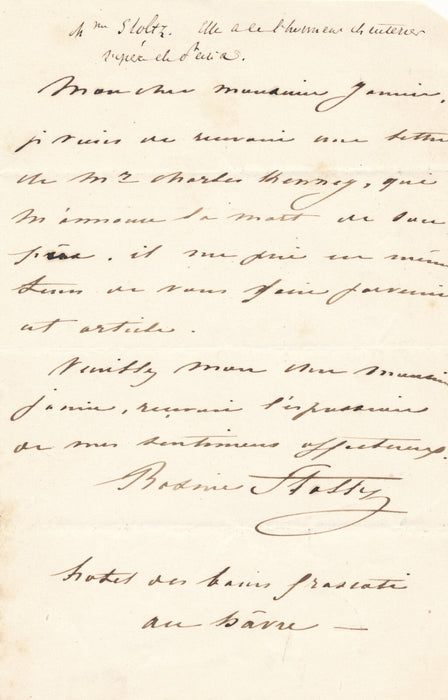 Mme Stoltz. Elle a eu l'honneur
Mon cher monsieur Janin,
je viens de recevoir une lettre
de Mr Charles Kenney, qui
m'annonce la mort de son
père. il me prie en même
tems de vous faire parvenir
cet article.
Veuillez mon cher monsieur
Janin, recevoir l'expression
de mes sentimens affectueux
Rosine Stoltz
hotel des bains frascati
au hâvre —